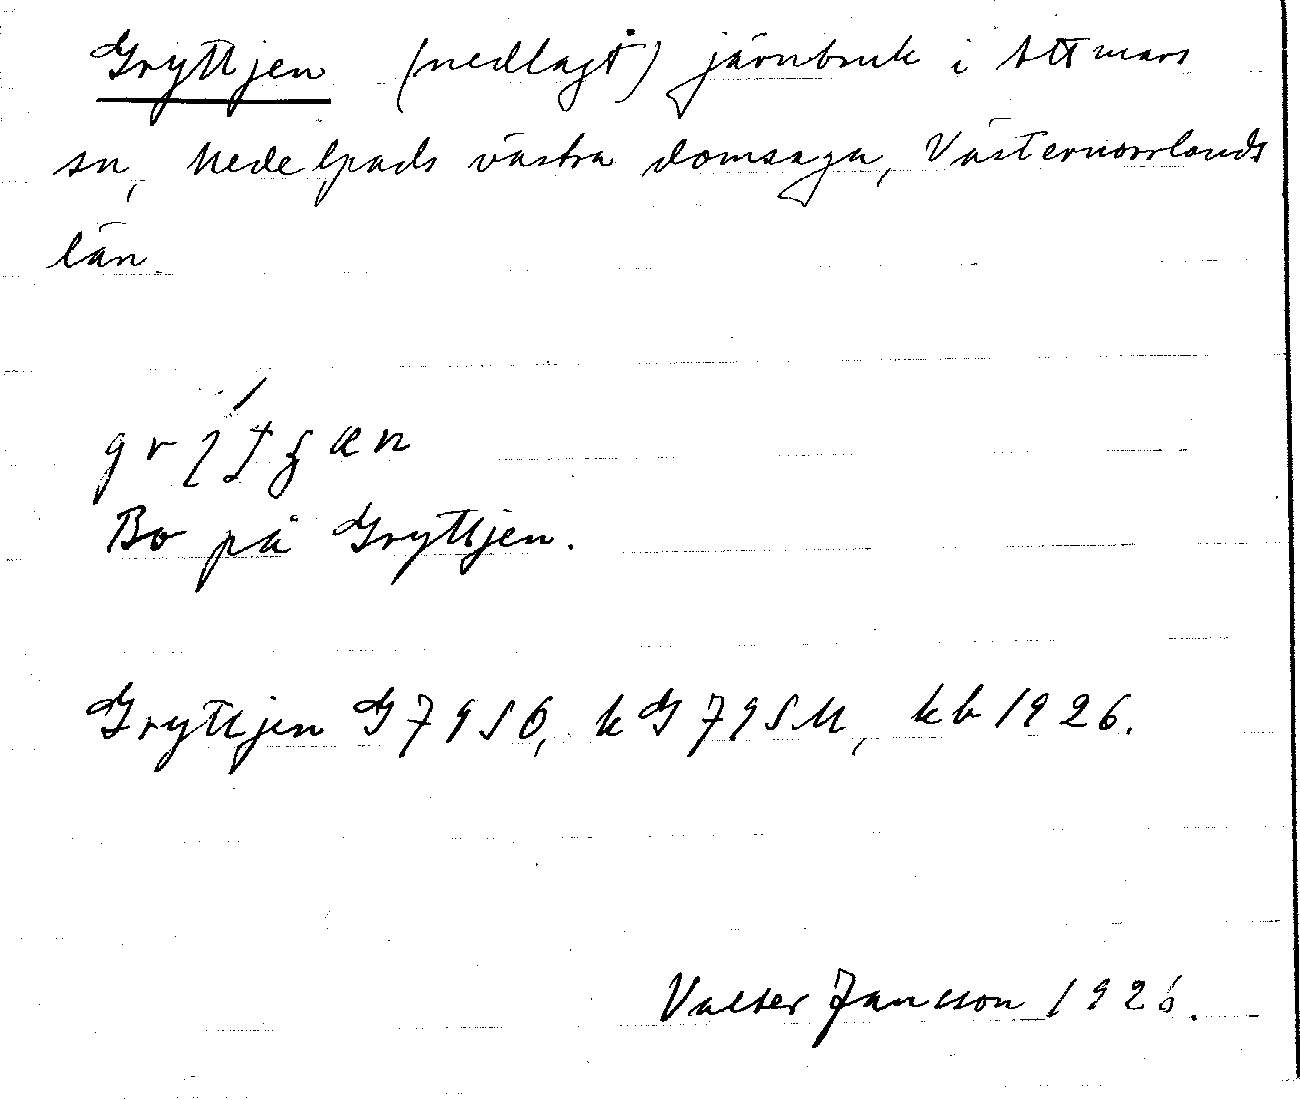 Gryttjen (nedlagt) järnbruk i Attmars
sn, Medelpads västra domsaga, Västernorrlands
län.
Bo på Gryttjen.
Gryttjen G 79 SO, kG 79 SM, kb 1926.
Valter Jansson 1926.